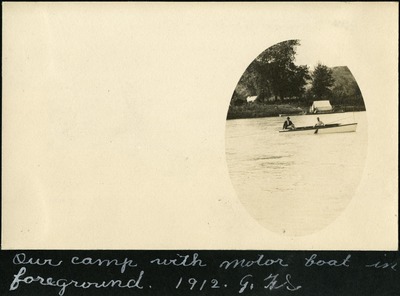 Our camp with motor boat in
foreground. 1912. G.